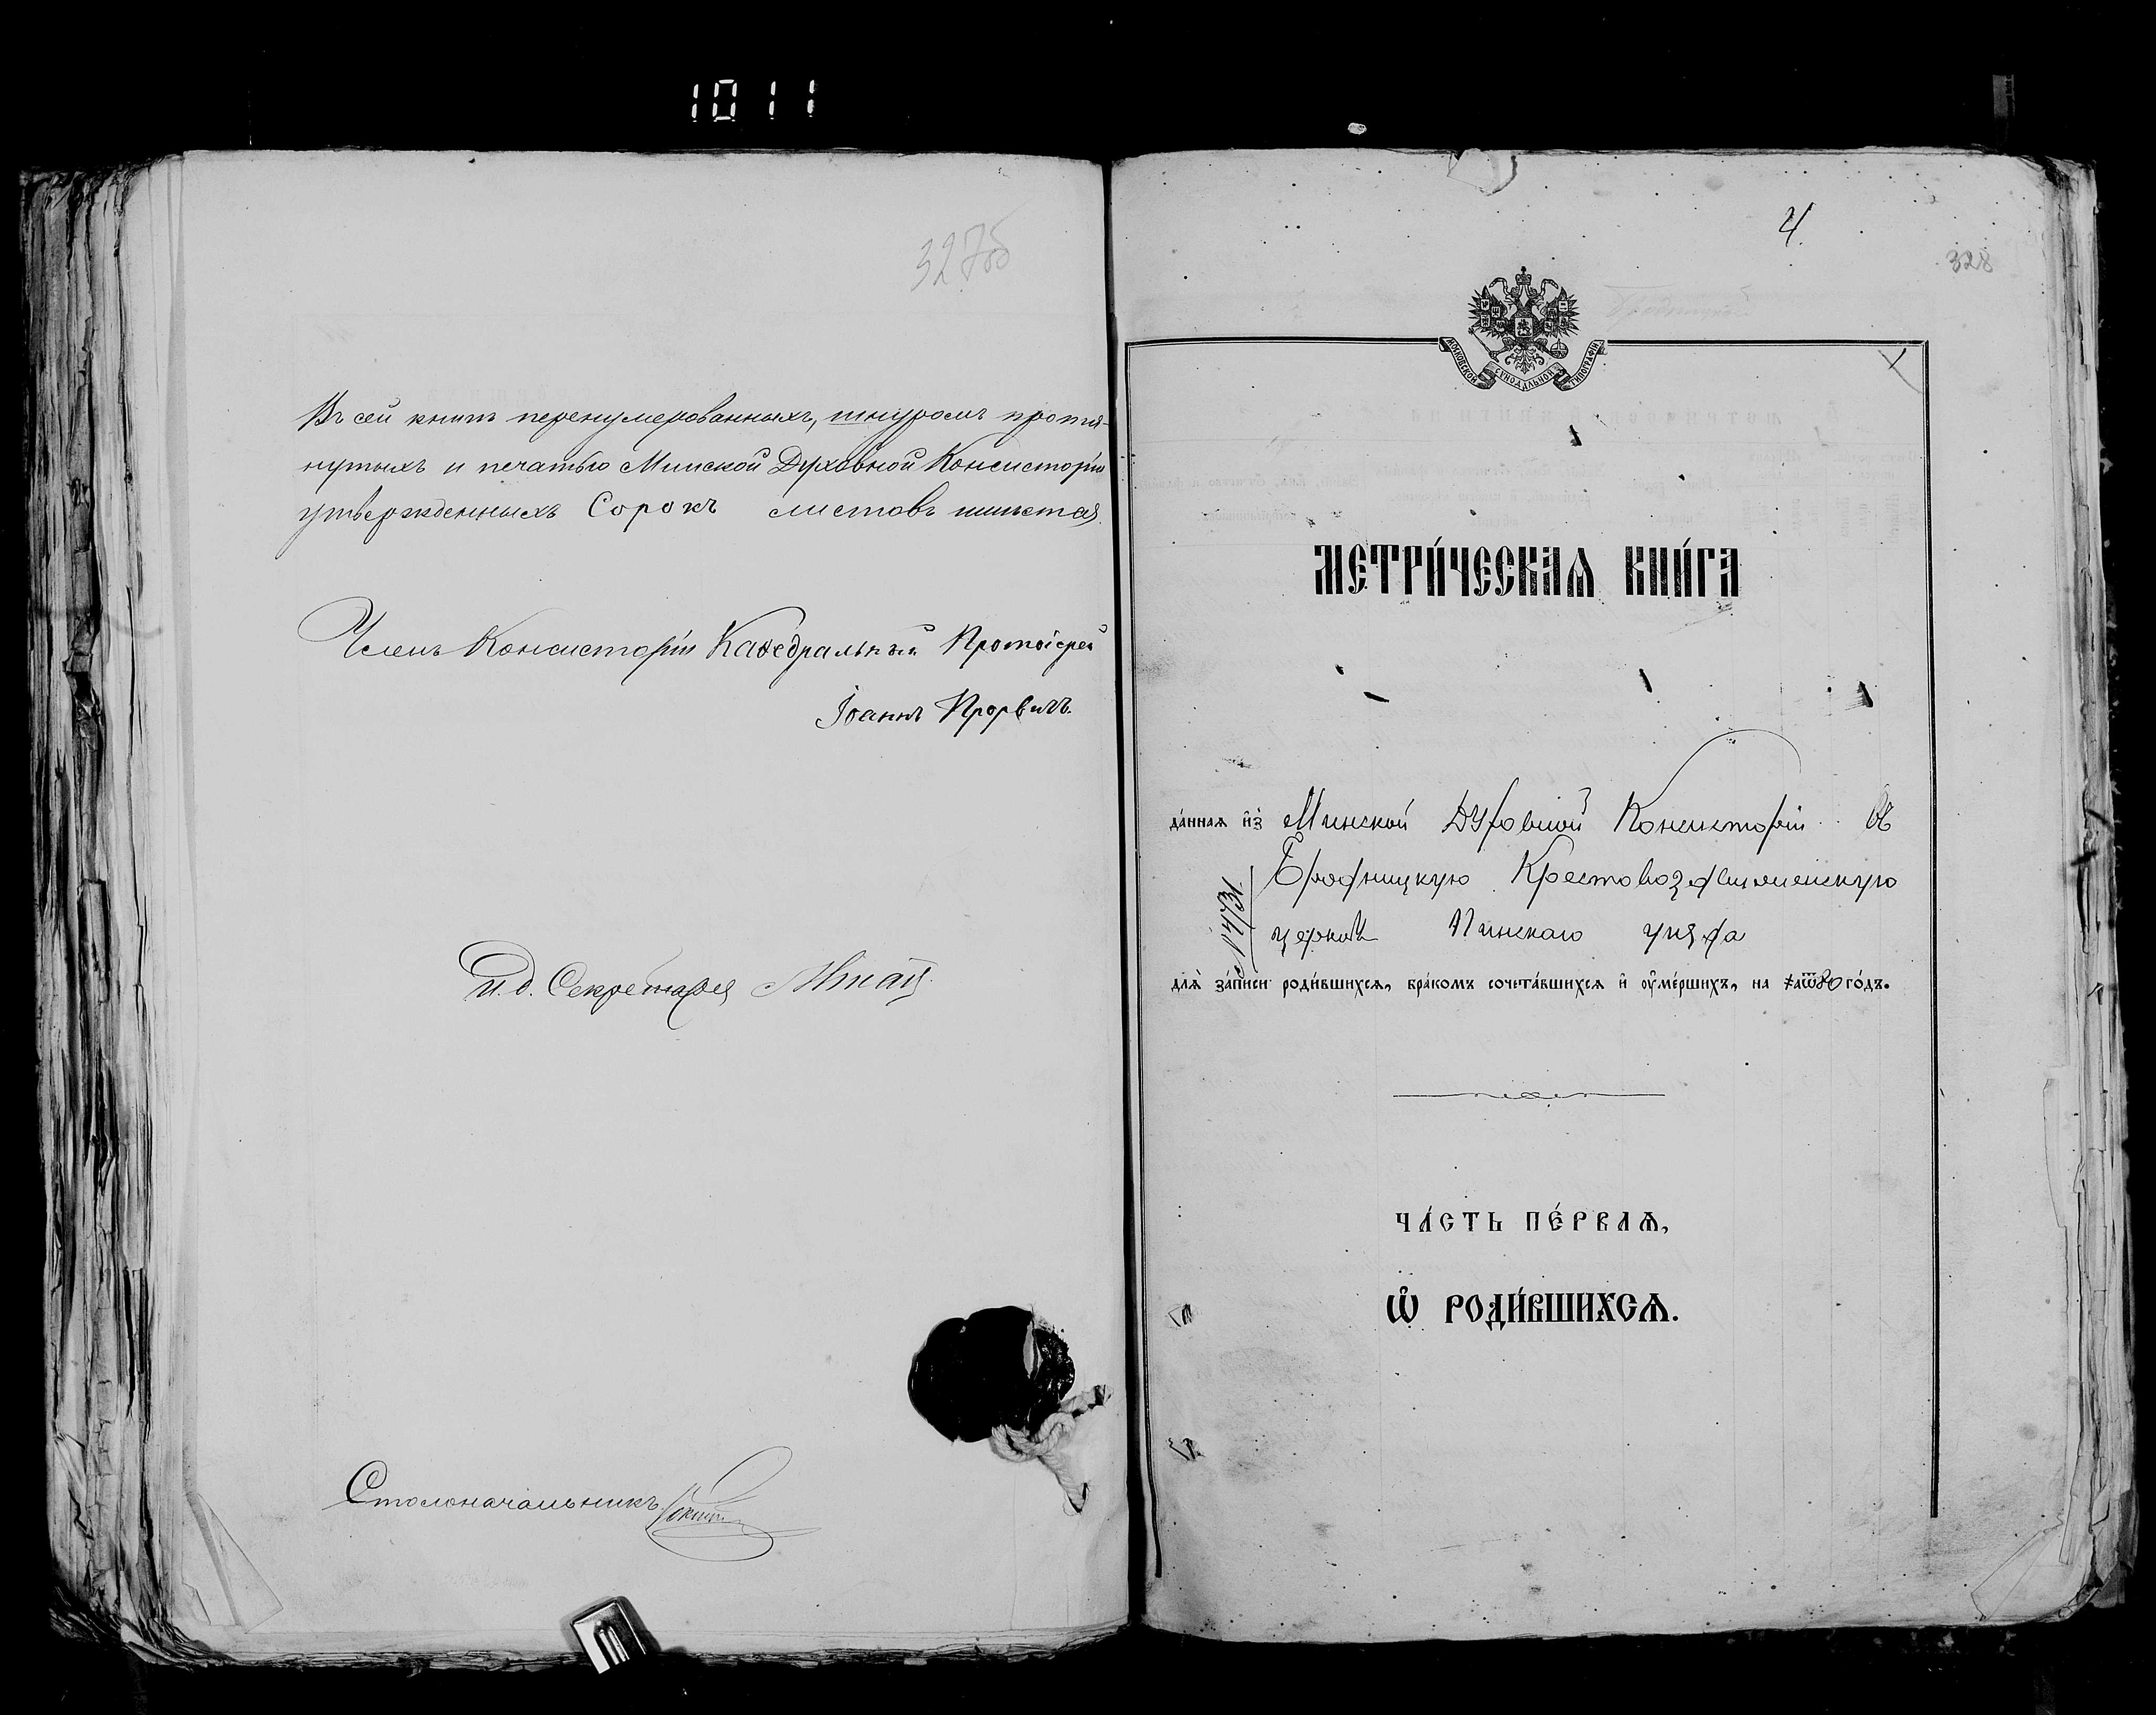 1011
327об
Въ сей книгѣ перенумерованныхъ, шнуромъ протя-
нутыхъ и печатью Минской Духовной Консисторіи
утвержденныхъ Сорокъ листовъ
Членъ Консисторіи Каѳедральный Протоіерей
Іоаннъ Прорвичъ.
И. д. Секретаря
Столоначальникъ
4.
328
МОСКОВСКОЙ СѴНОДАЛЬНОЙ ТИПОГРАФІИ
МЕТРИ́ЧЕСКАѦ КНИ́ГА
да́ннаѧ и҆з̾ Минской Духовной Консисторіи въ
Бродницкую Крестовоздвиженскую
церковь Пинскаго уѣзда
длѧ̀ за́писи роди́вшихсѧ, бра́комъ сочета́вшихсѧ и҆ ᲂу҆ме́ршихъ, на го́дъ.
ЧА́СТЬ ПЕ́РВАѦ,
Ѽ РОДИ́ВШИХСѦ.